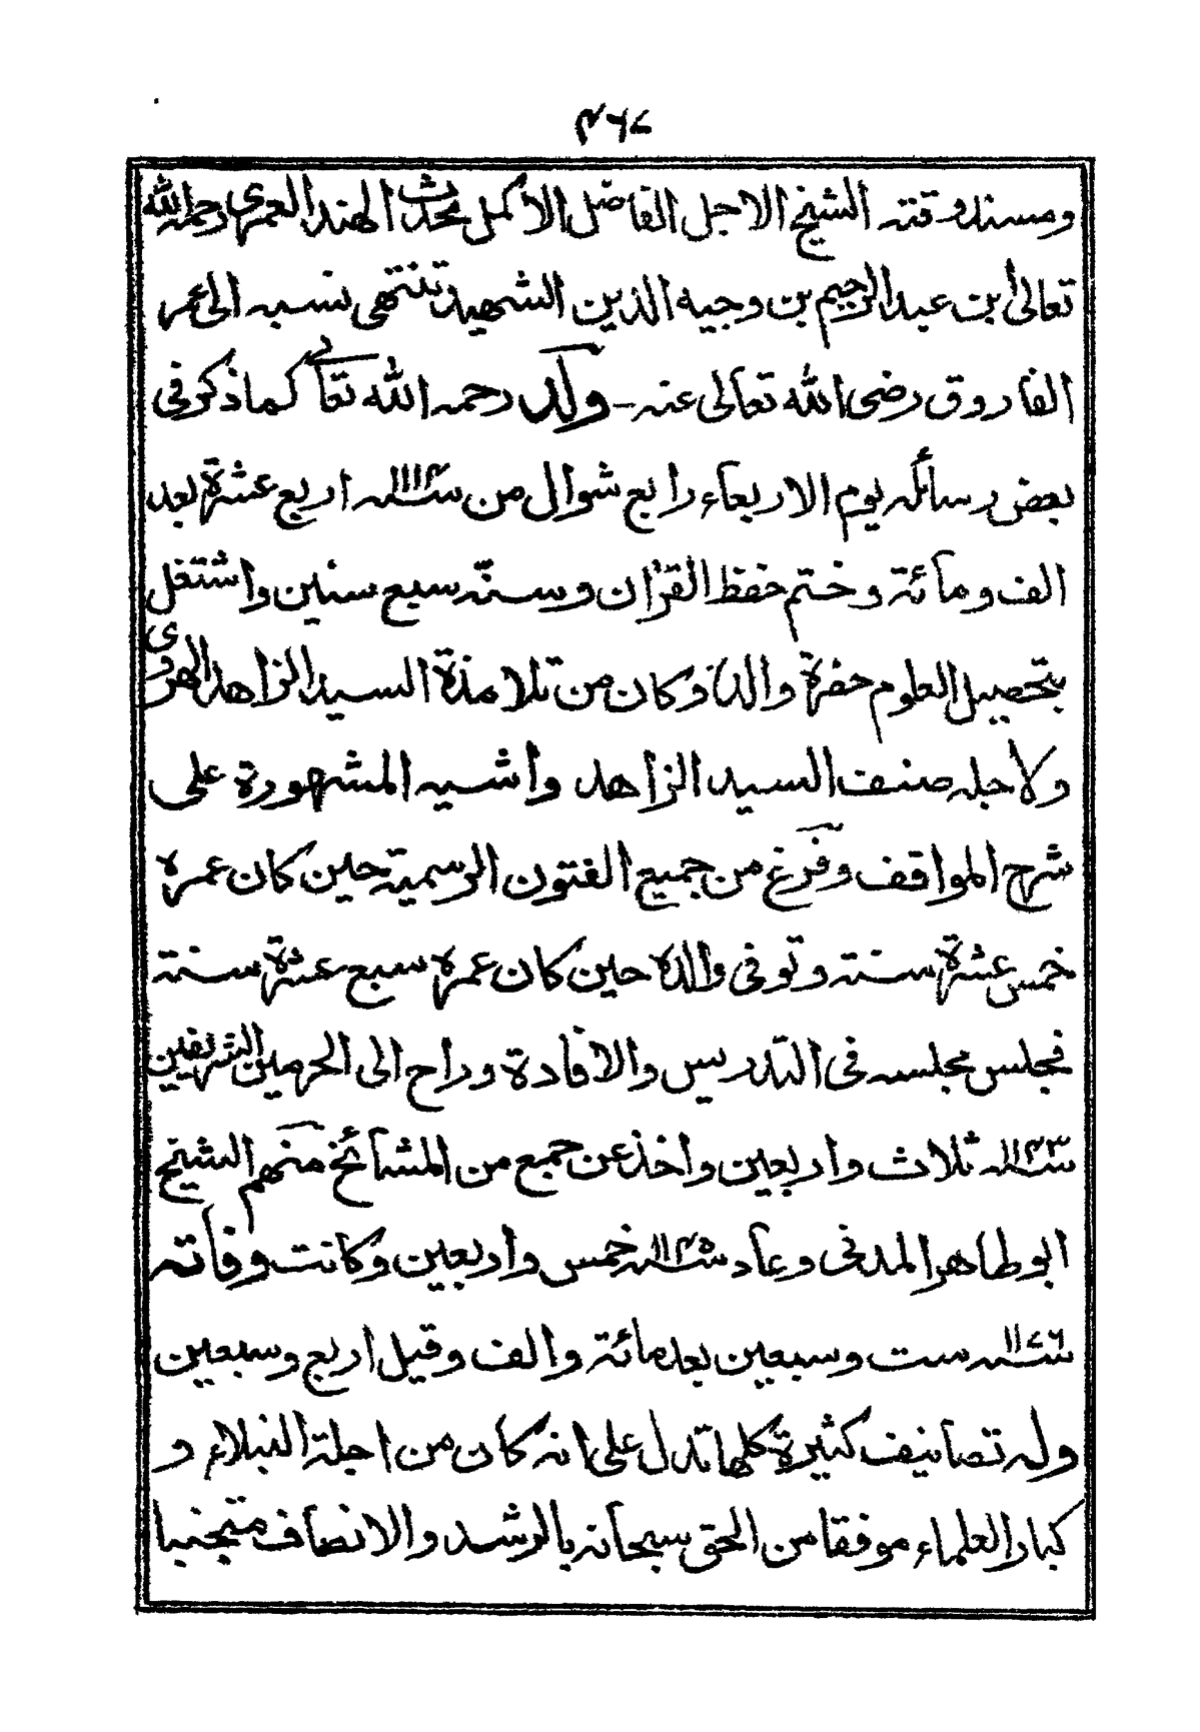 ۴۶۷
ومسند وقتہ الشیخ الاجل الفاضل الاکمل محدث الھند العمری رحمہ اللہ
تعالیٰ ابن عبد الرحیم بن وجیہ الدین الشھید تنتھی نسبہ الی عمر
الفاروق رضی اللہ تعالی عنہ ـ ولد رحمہ اللہ تعالٰے کماذکر فی
بعض رسائلہ یوم الاربعاء رابع شوال من سنہ ۱۱۱۴ اربع عشرۃ بعد
الف ومائۃ وختم حفظ القرٰان وسنّہ سبع سنین واشتغل
بتحصیل العلوم حضرۃ والدہ وکان من تلامذۃ السید الزاھد الھروی
ولاجلہ صنف السید الزاھد واشیہ المشھورۃ علی
شرح المواقف وفرغ من جمیع الفنون الرسمیۃ حین کان عمرہ
خمس عشرۃ سنۃ وتوفی والدہ حین کان عمرہ سبع عشرۃ سنۃ
فجلس مجلسہ فی التدریس والافادۃ وراح الی الحرمین الشریفین
سنہ ۱۱۴۳ ثلاث واربعین واخذ عن جمع من المشائخ منھم الشیخ
ابو طاھر المدنی وعاد سنہ ۱۱۴۵ خمس واربعین وکانت وفاتہ
سنہ ۱۱۷۶ ست وسبعین بعد مائۃ والف وقیل اربع وسبعین
ولہ تصانیف کثیرۃ کلھا تدل علی انہ کان من اجلۃ النبلاء و
کبار العلماء موفقا من الحق سبحانہ بالرشد والانصاف متجنبا